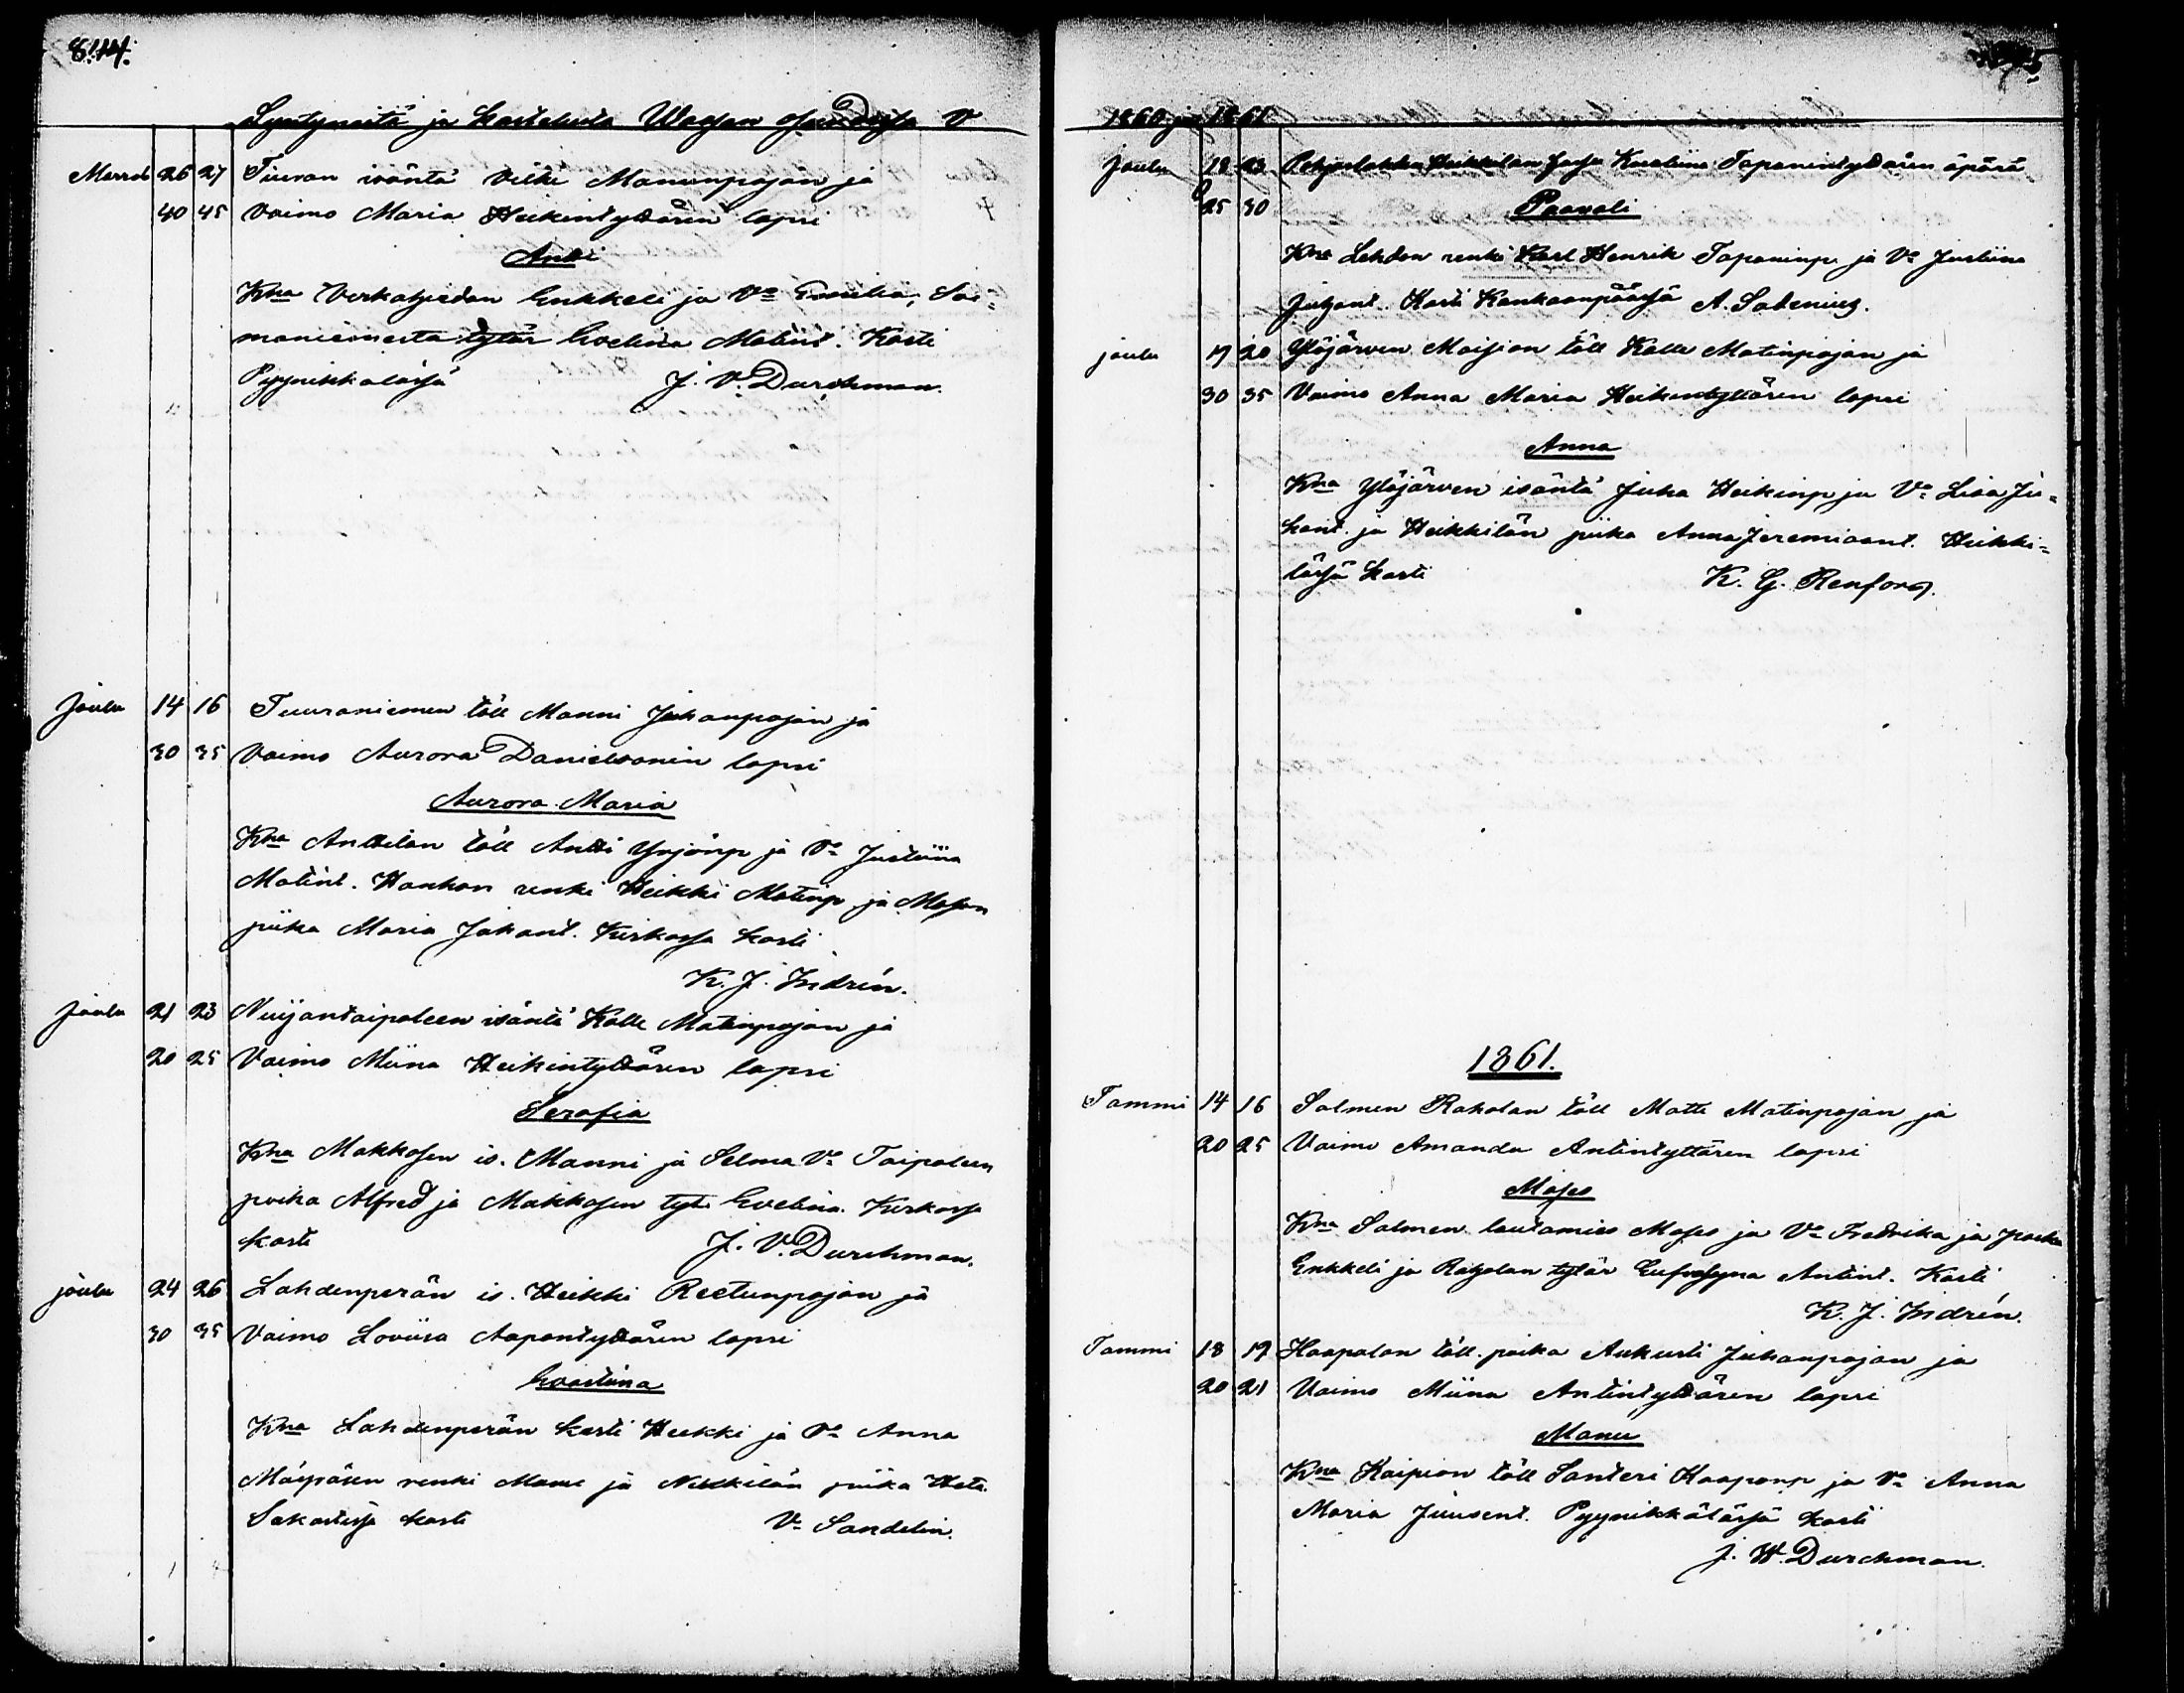 Syntyneitä ja kastetuita V
Marrask 26 27 Tiuran isäntä Ville Manunpojan ja
40 45 Vaimo Maria Heikintyttären lapsi
Antti
Kna Verkatjedan Enkkeli ja Vo Emilia, Sal-
maniemestä tytär Evelina Matint. Kasti
Pyynikkalässä J. V. Durchman.
Joulu 14 16 Tuuraniemen töll Manni Juhanpojan ja
30 35 Vaimo Aurora Danielsonin lapsi
Aurora Maria
Kna Anttilan töll Antti Yrjönp ja Vo Justiina
Matint. Hankan renki Heikki Matinp ja
piika Maria Juhant. Kirkossa kasti
K. J. Indrén.
Joulu 21 23 Nuijantaipaleen isäntä Kalle Matinpojan ja
20 25 Vaimo Miina Heikintyttären lapsi
Serafia
Kna Makkosen is. Manni ja Selma Vo Taipaleen
poika Alfred ja Makkosen tyt. Evelina. Kirkossa
kasti J. V. Durchman.
joulu 24 26 Lahdenperän is. Heikki Reetunpojan ja
30 35 Vaimo Loviisa Aapontyttären lapsi
Evastiina
Kna Lahdenperän Kusti Heikki ja Vo Anna
renki Manu ja Nikkilän piika Heta.
kasti V. Sandelin.
1860 ja 1861
Joulu 18 23 Heikkilän Karoliina Tapanintyttären äpärä
25 30 Paaveli
Kna Lehdon renki Karl Henrik Tapaninp ja Vo Justiina
Juhant. Kasti Kankaanpäässä A. Salenius.
joulu 17 20 Ylöjärven Maision töll Kalle Matinpojan ja
30 35 Vaimo Anna Maria Heikintyttären lapsi
Anna
Kna Ylöjärven isäntä Juha Heikinp ja Vo Liisa Ju-
hant. ja Heikkilän piika Anna Jeremiaant. Heikki-
lässä kasti K. G. Renfors.
1861.
Tammi 14 16 Salmen Raholan töll Matti Matinpojan ja
20 25 Vaimo Amanda Antintyttären lapsi
Moses
Kna Salmen lautamies Moses ja Vo Fredrika ja poika
Enkkeli ja Raholan tytär Eufrosyna Antint. Kasti
K. J. Indrén.
Tammi 18 19 Haapalan töll. poika Aukusti Juhanpojan ja
20 21 Vaimo Miina Antintyttären lapsi
Manu
Kna Kaipion töll Santeri Kaaponp ja Vo Anna
Maria Juusent. Pyynikkälässä kasti
J. W. Durchman.